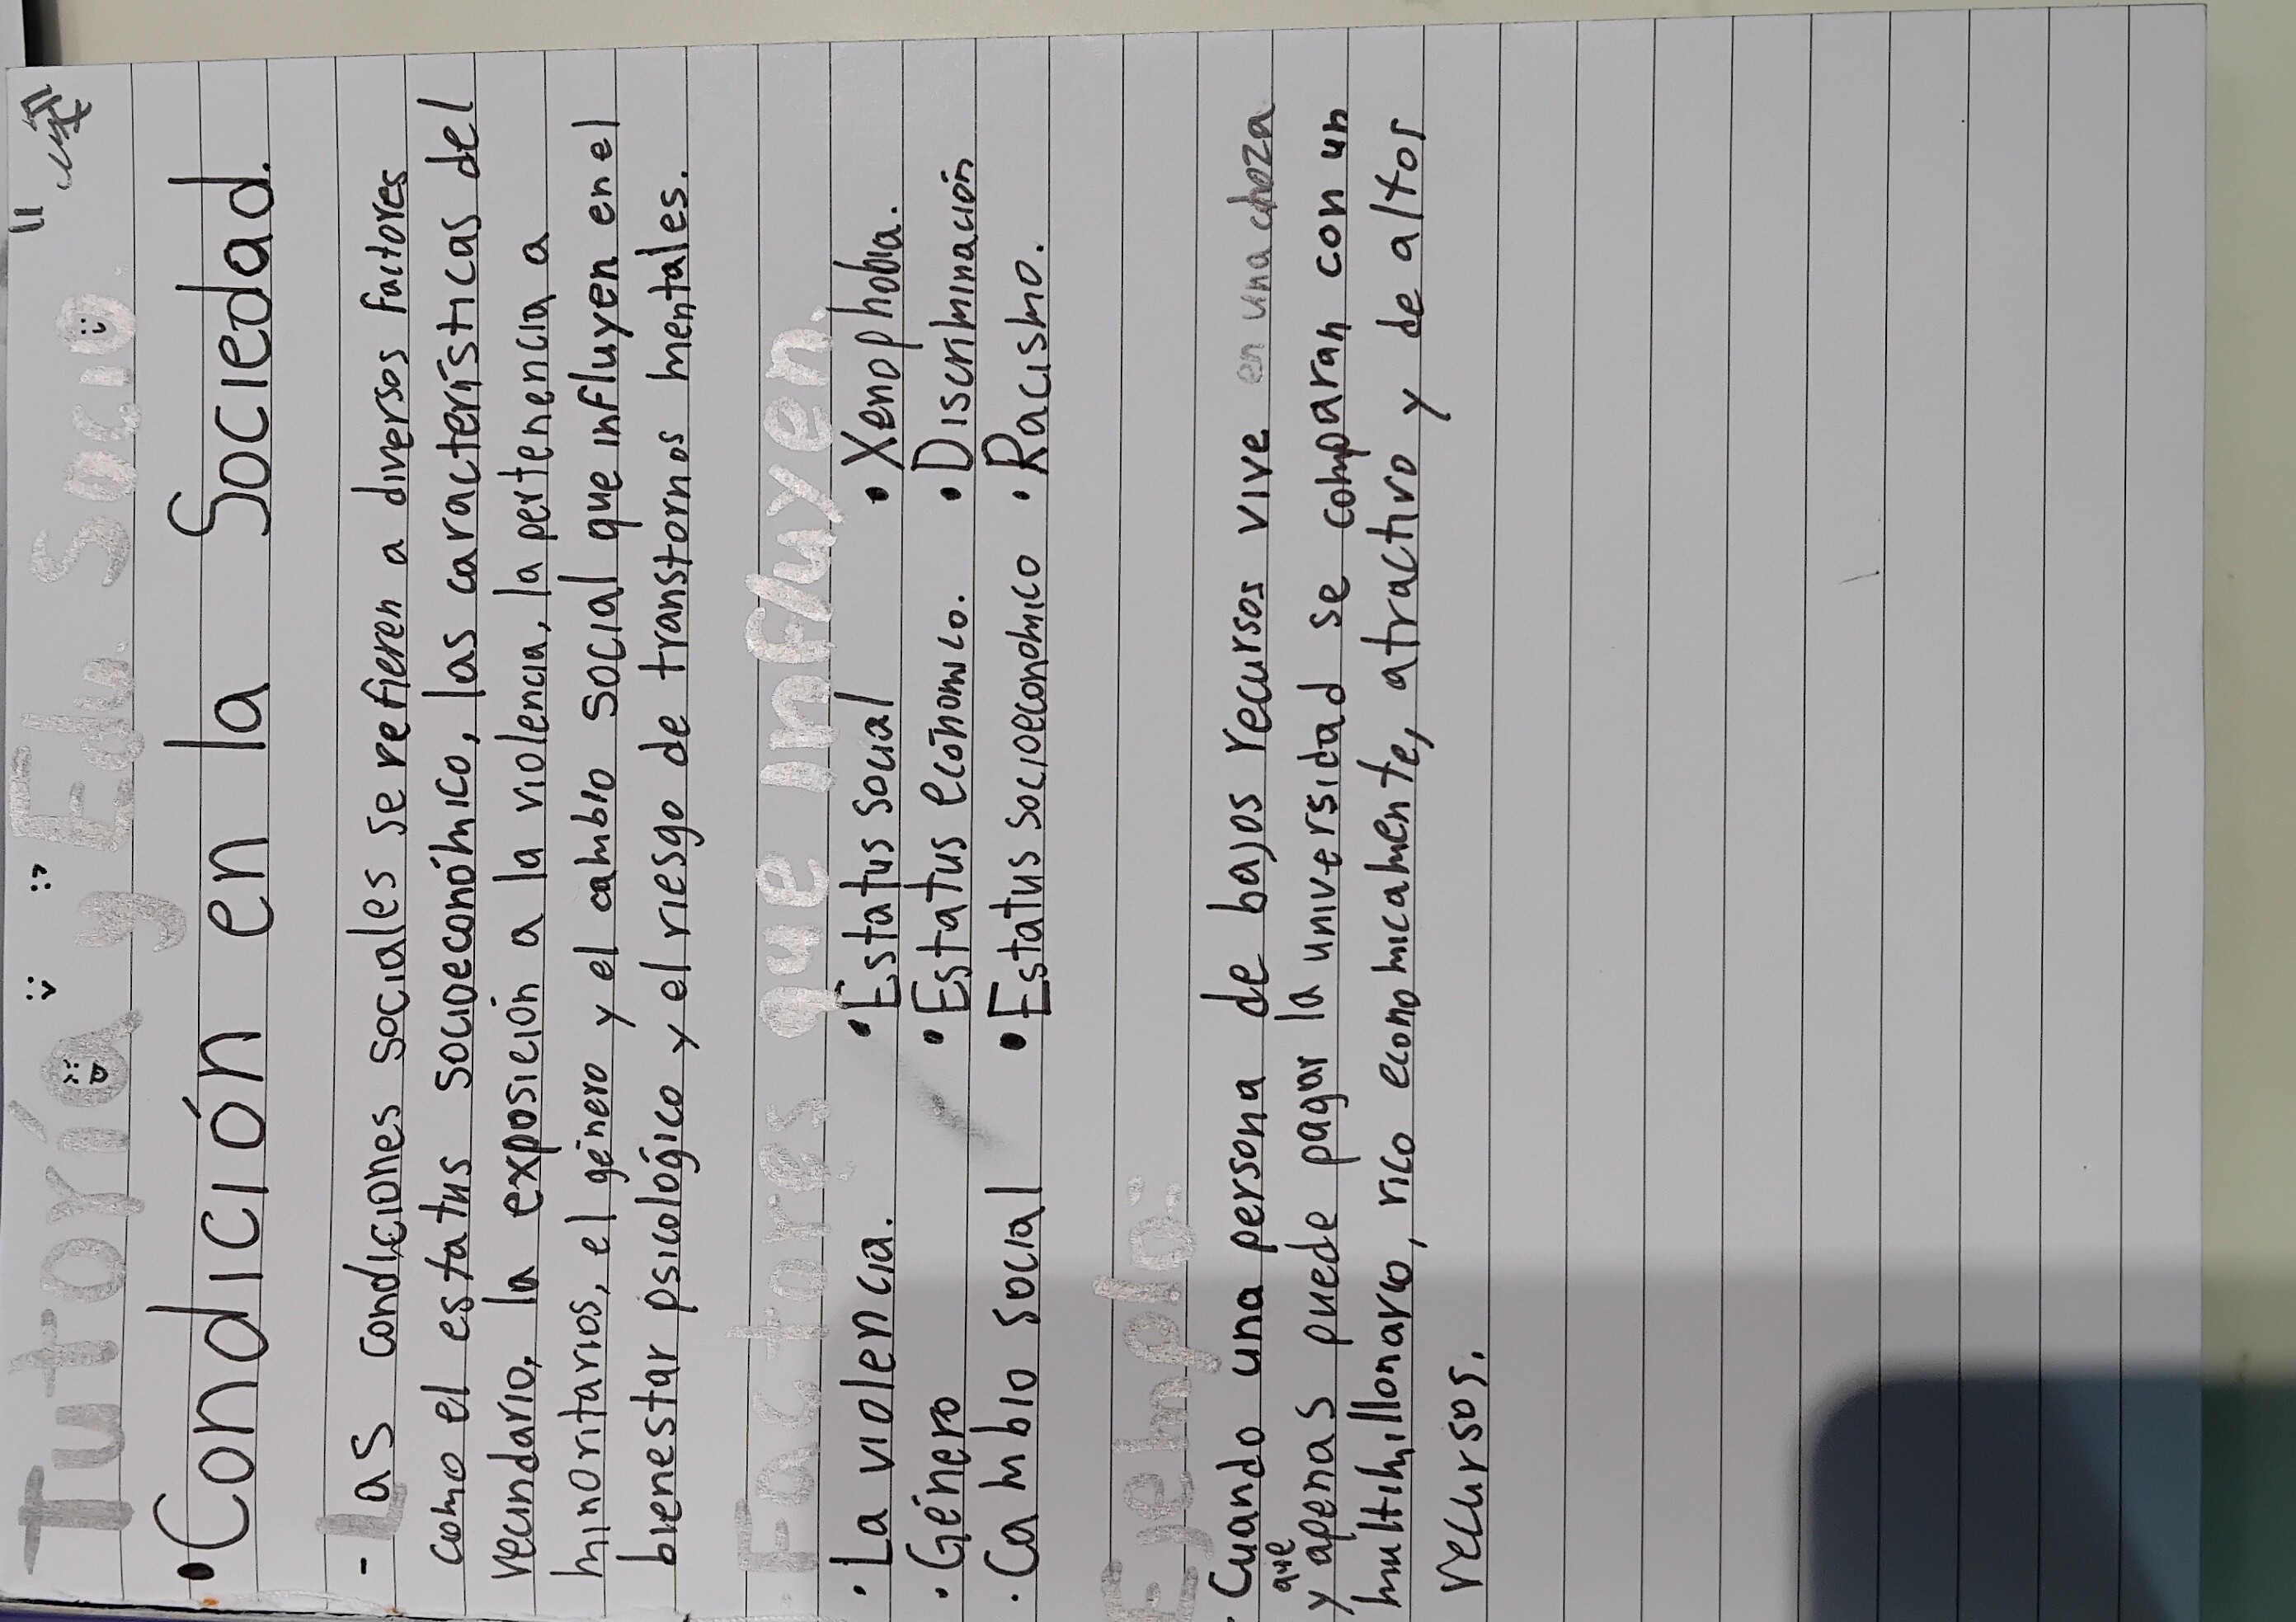 Tutoría y Edu. Socio.
• Condición en la Sociedad.
- Las condiciones sociales se refieren a diversos factores
como el estatus socioeconóhmico, las características del
vecindario, la exposición a la violencia, la pertenencia a
minoritarios, el género y el cambio social que influyen en el
bienestar psicológico y el riesgo de transtornos mentales.
· Factores que influyen.
· La violencia. • Estatus social • Xenophobia.
· Género • Estatus económico. • Discriminación
· Cambio social • Estatus socioeconomico • Racismo.
Ejemplo:
· Cuando una persona de bajos recursos vive en una choza
que
y apenas puede pagar la universidad se comparan con un
multimillonario, rico economicamente, atractivo y de altos
recursos.